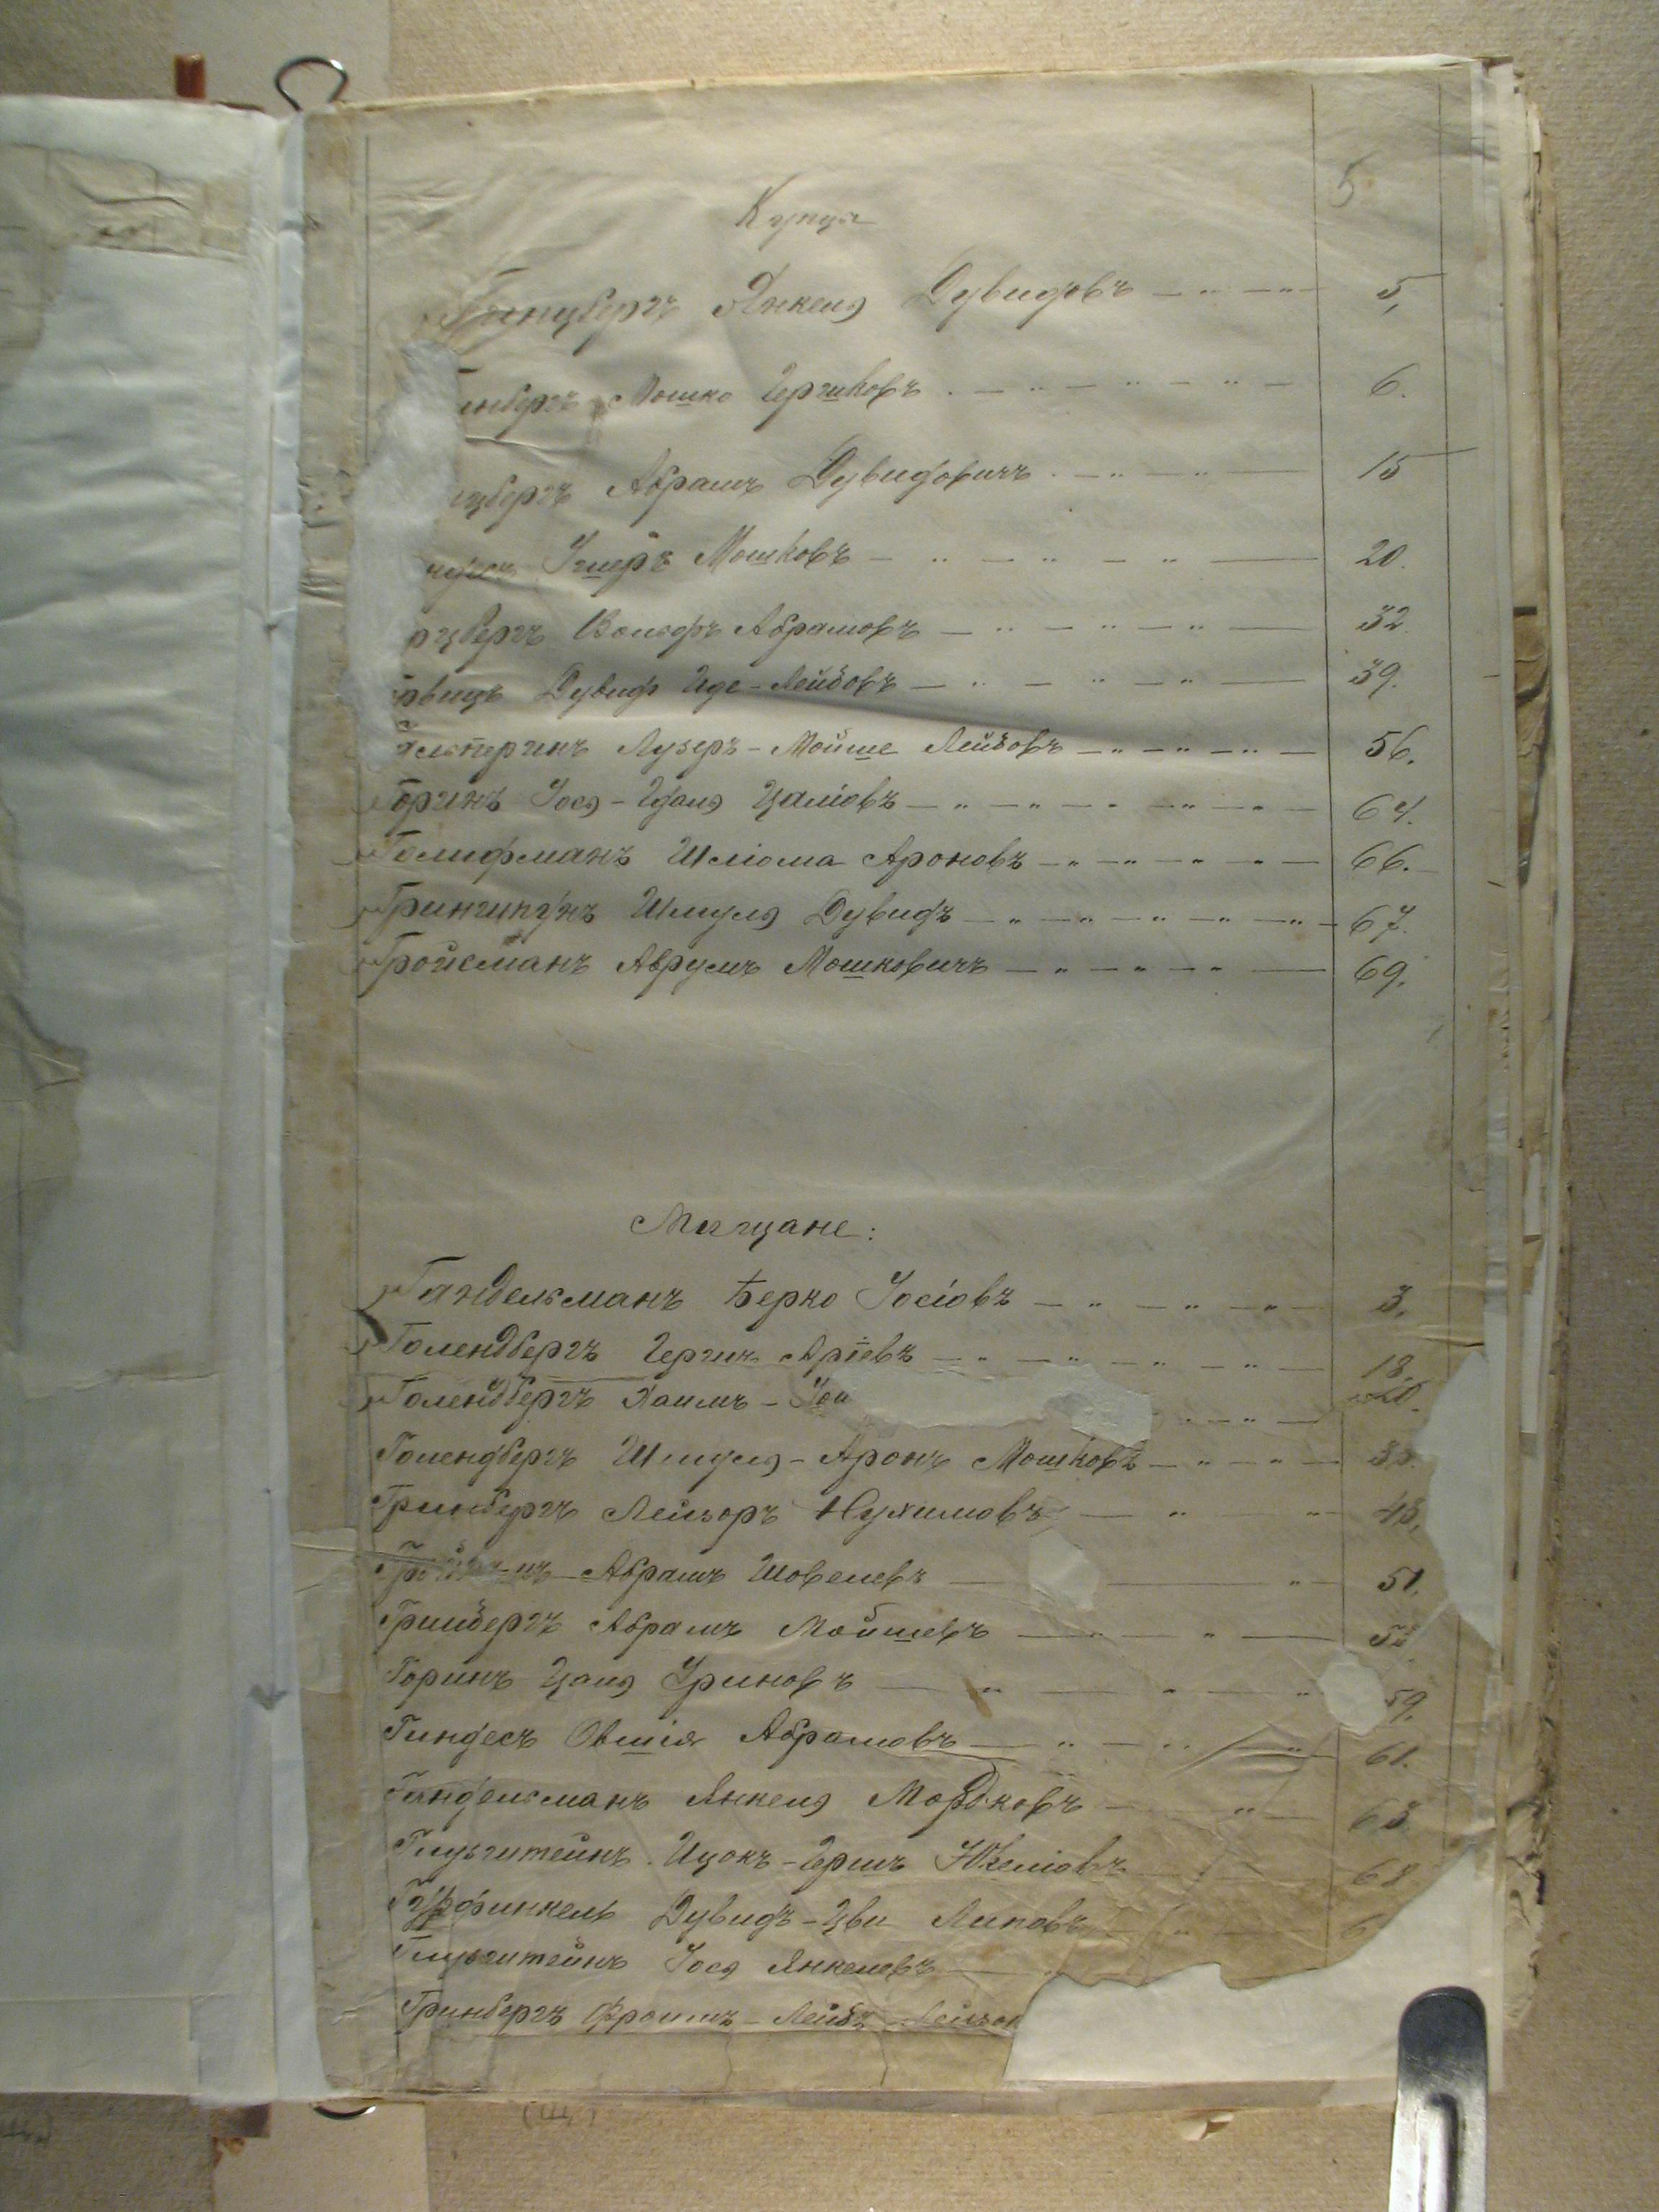 5
Купцы
Гинцбергъ Янкель Дувидовъ 5,
инбергъ Мошко Гершковъ 6.
цбергъ Абрамъ Дувидовичъ 15
Мошковъ 20.
рцбергъ Вольфъ Абрамовъ 32.
рвицъ Дувидъ Иде-Лейбовъ 39.
альперинъ Лузеръ-Мойше Лейбовъ 56.
Горинъ Іося-Идаль Цаліовъ 64.
Голифманъ Шліома Ароновъ 66.
Шмуль Дувидъ 67.
Гройсманъ Аврумъ Мошковичъ 69.
Мѣщане:
Гандельманъ Берко Іосіовъ 3.
Голендбергъ Гершъ Аріевъ 18.
Голендбергъ Хаимъ-Іои 20.
Голендбергъ Шмуль-Аронъ Мошковъ
Гринбергъ Лейзоръ Нухимовъ 48.
Абрамъ Шовелевъ 51.
Гринбергъ Абрамъ Мойшевъ
Горинъ Цаль Уриновъ 59.
Гиндесъ Овшія Абрамовъ 61.
Гандельманъ Янкель Мордковъ 63.
Глузштейнъ Ицокъ-Гершъ Юкеліовъ 68
Гурфинкель Дувидъ-Цви Липовъ 6
Глузштейнъ Іось Янкелевъ
Гринбергъ Фроимъ-Лейбъ Лейзор